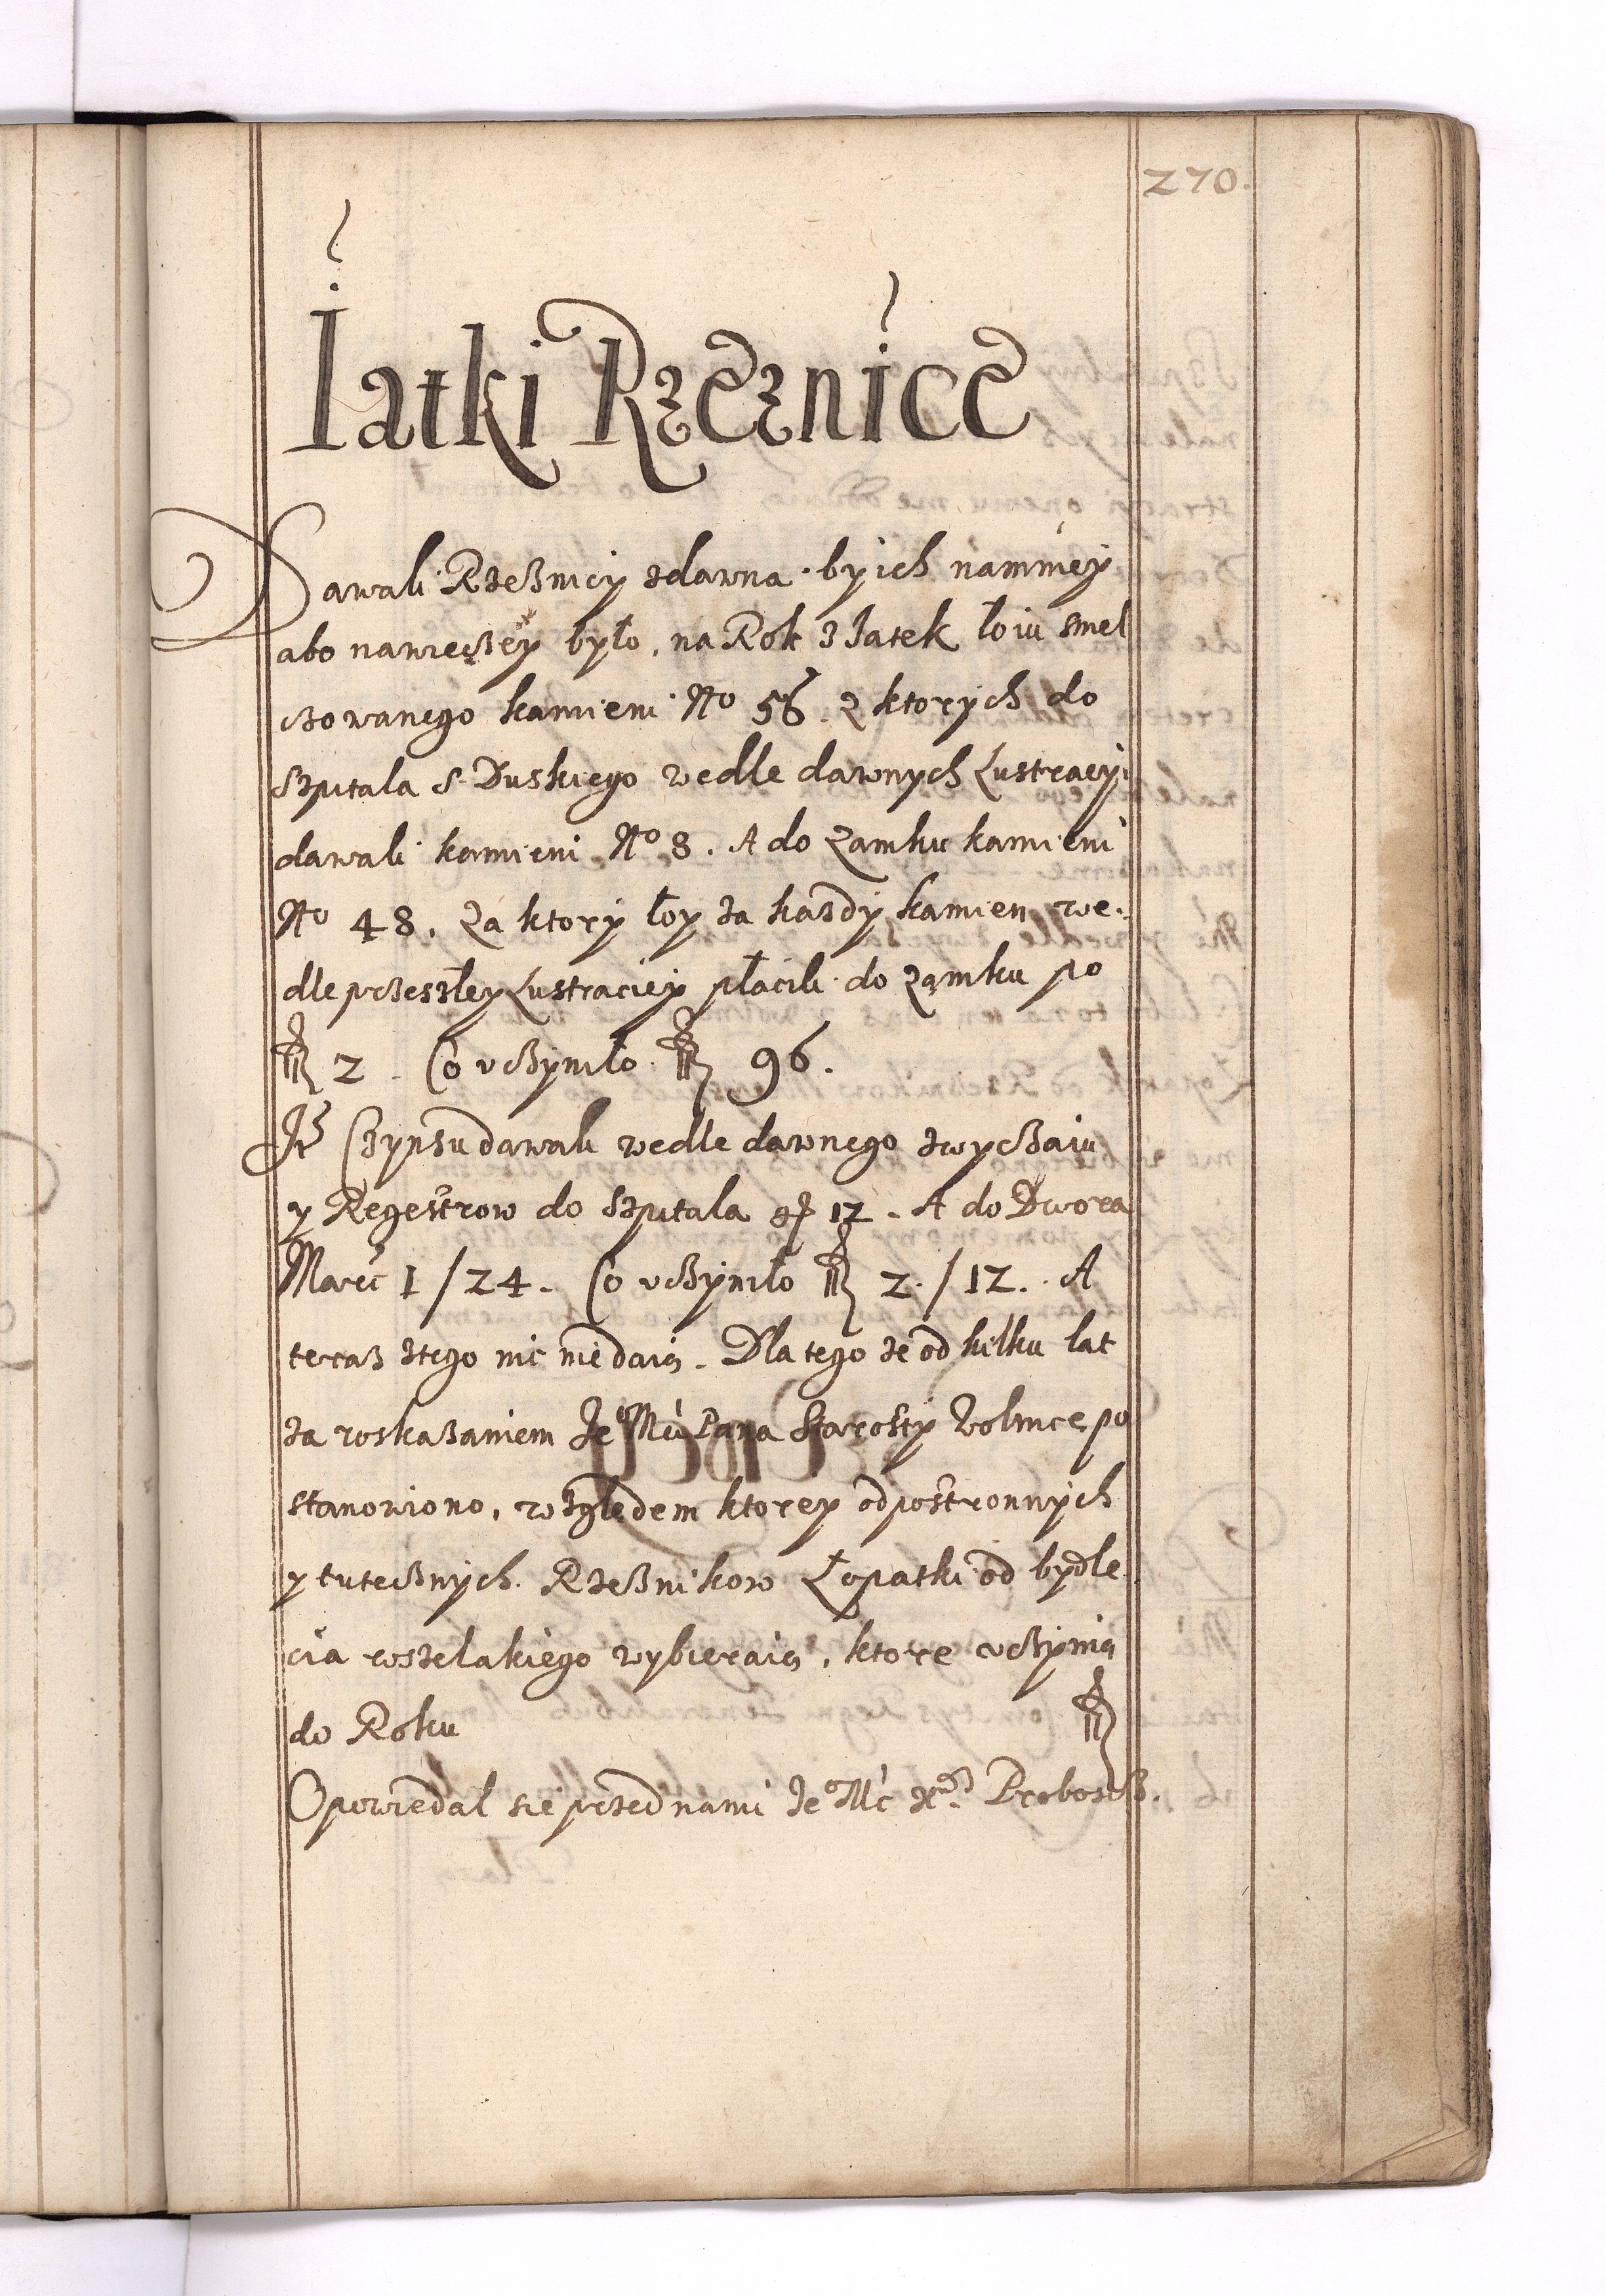 270.
Iatki Rzeznice
Dawali Rzeźnicy zdawna by ich namniey
abo nawięcey było, na Rok z Iatek łoiu smel
czowanego kamieni No 56. z ktorych do
Szpitala S. Duskiego wedle dawnych Lustracyi
dawali kamieni No 8. A do Zamku kamieni
No 48. Za ktory łoy za każdy kamien we.
dle przeszłey Lustraciey płacili do Zamku po
2 Co vczyniło 96.
Czynszu dawali wedle dawnego zwyczaiu
y Regestrow do Szpitala gr 12. A do Dwora
Marc 1/24. Co vczyniło 2./12. A
teraz ztego nic niedaią. Dla tego że od kilku lat
za roskazaniem Je⁰ Mći Pana Starosty Wolnice po
stanowiono, względem ktorey od postronnych
y tutecznych Rzeźnikow Łopatki od bydle
cia wszelakiego wybieraią, ktore vczynią
do Roku
Opowiedał sie przed nami Je⁰ Mć Xdz Proboszcz.